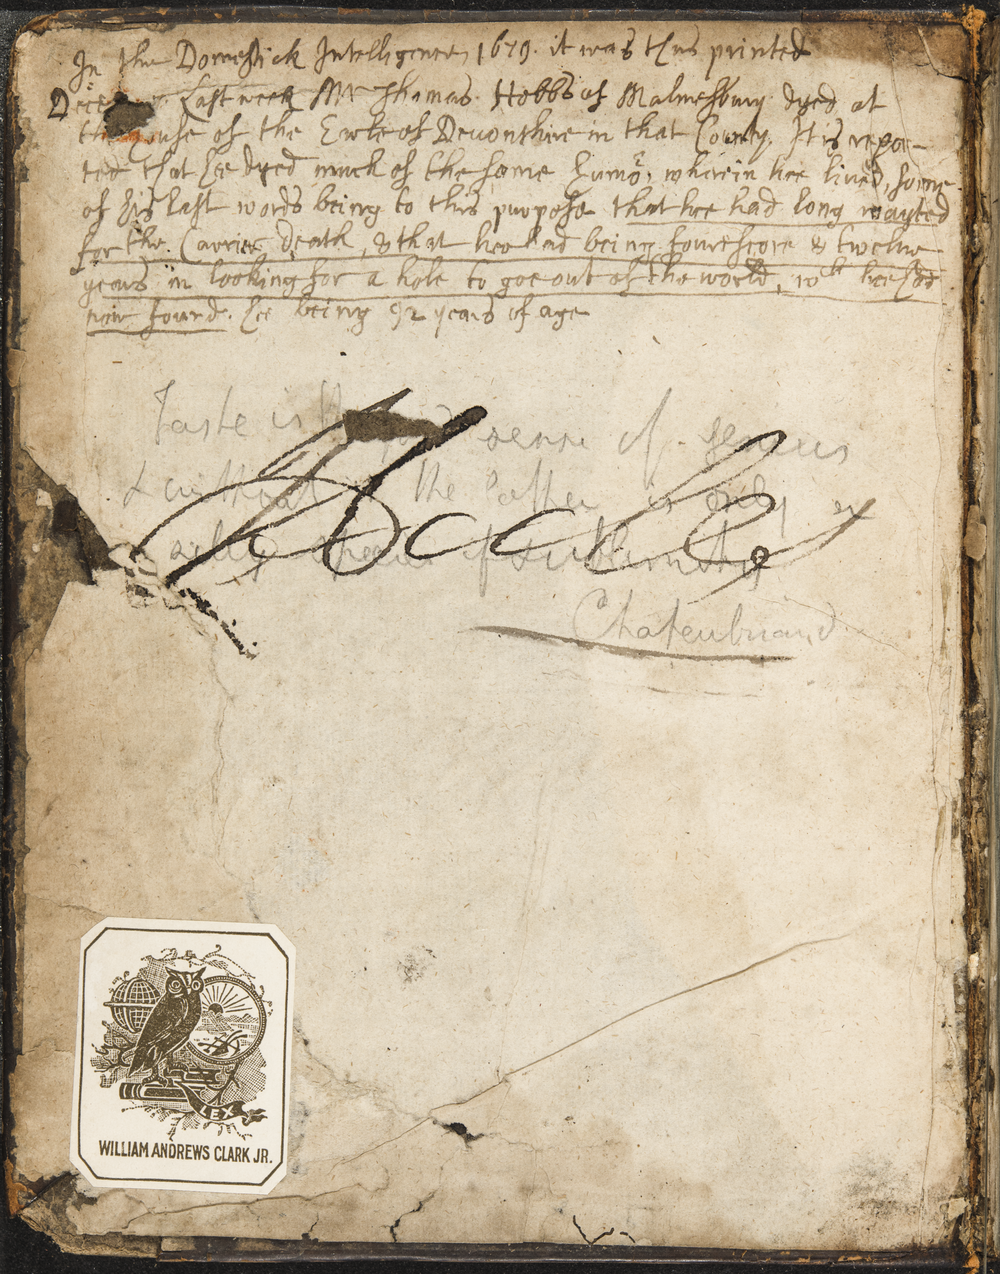 In the Domestick Intelligence, 1679. it was thus printed
Last week Mr Thomas Hobbs of Malmesbury dyed at
house of the Earle of Devonshire in that County. It is repor-
ted that hee dyed much of the same humor, wherein hee lived, some
of his last words being to this purpose that hee had long wayted
for the Carrier death, & that hee had being fourescore & twelve
years in looking for a hole to goe out of the world, wch hee had
now found. hee being 92 years of age
Taste is the good sense of genius
& without the latter is only a
silly
Chateubriand
LEX
WILLIAM ANDREWS CLARK JR.